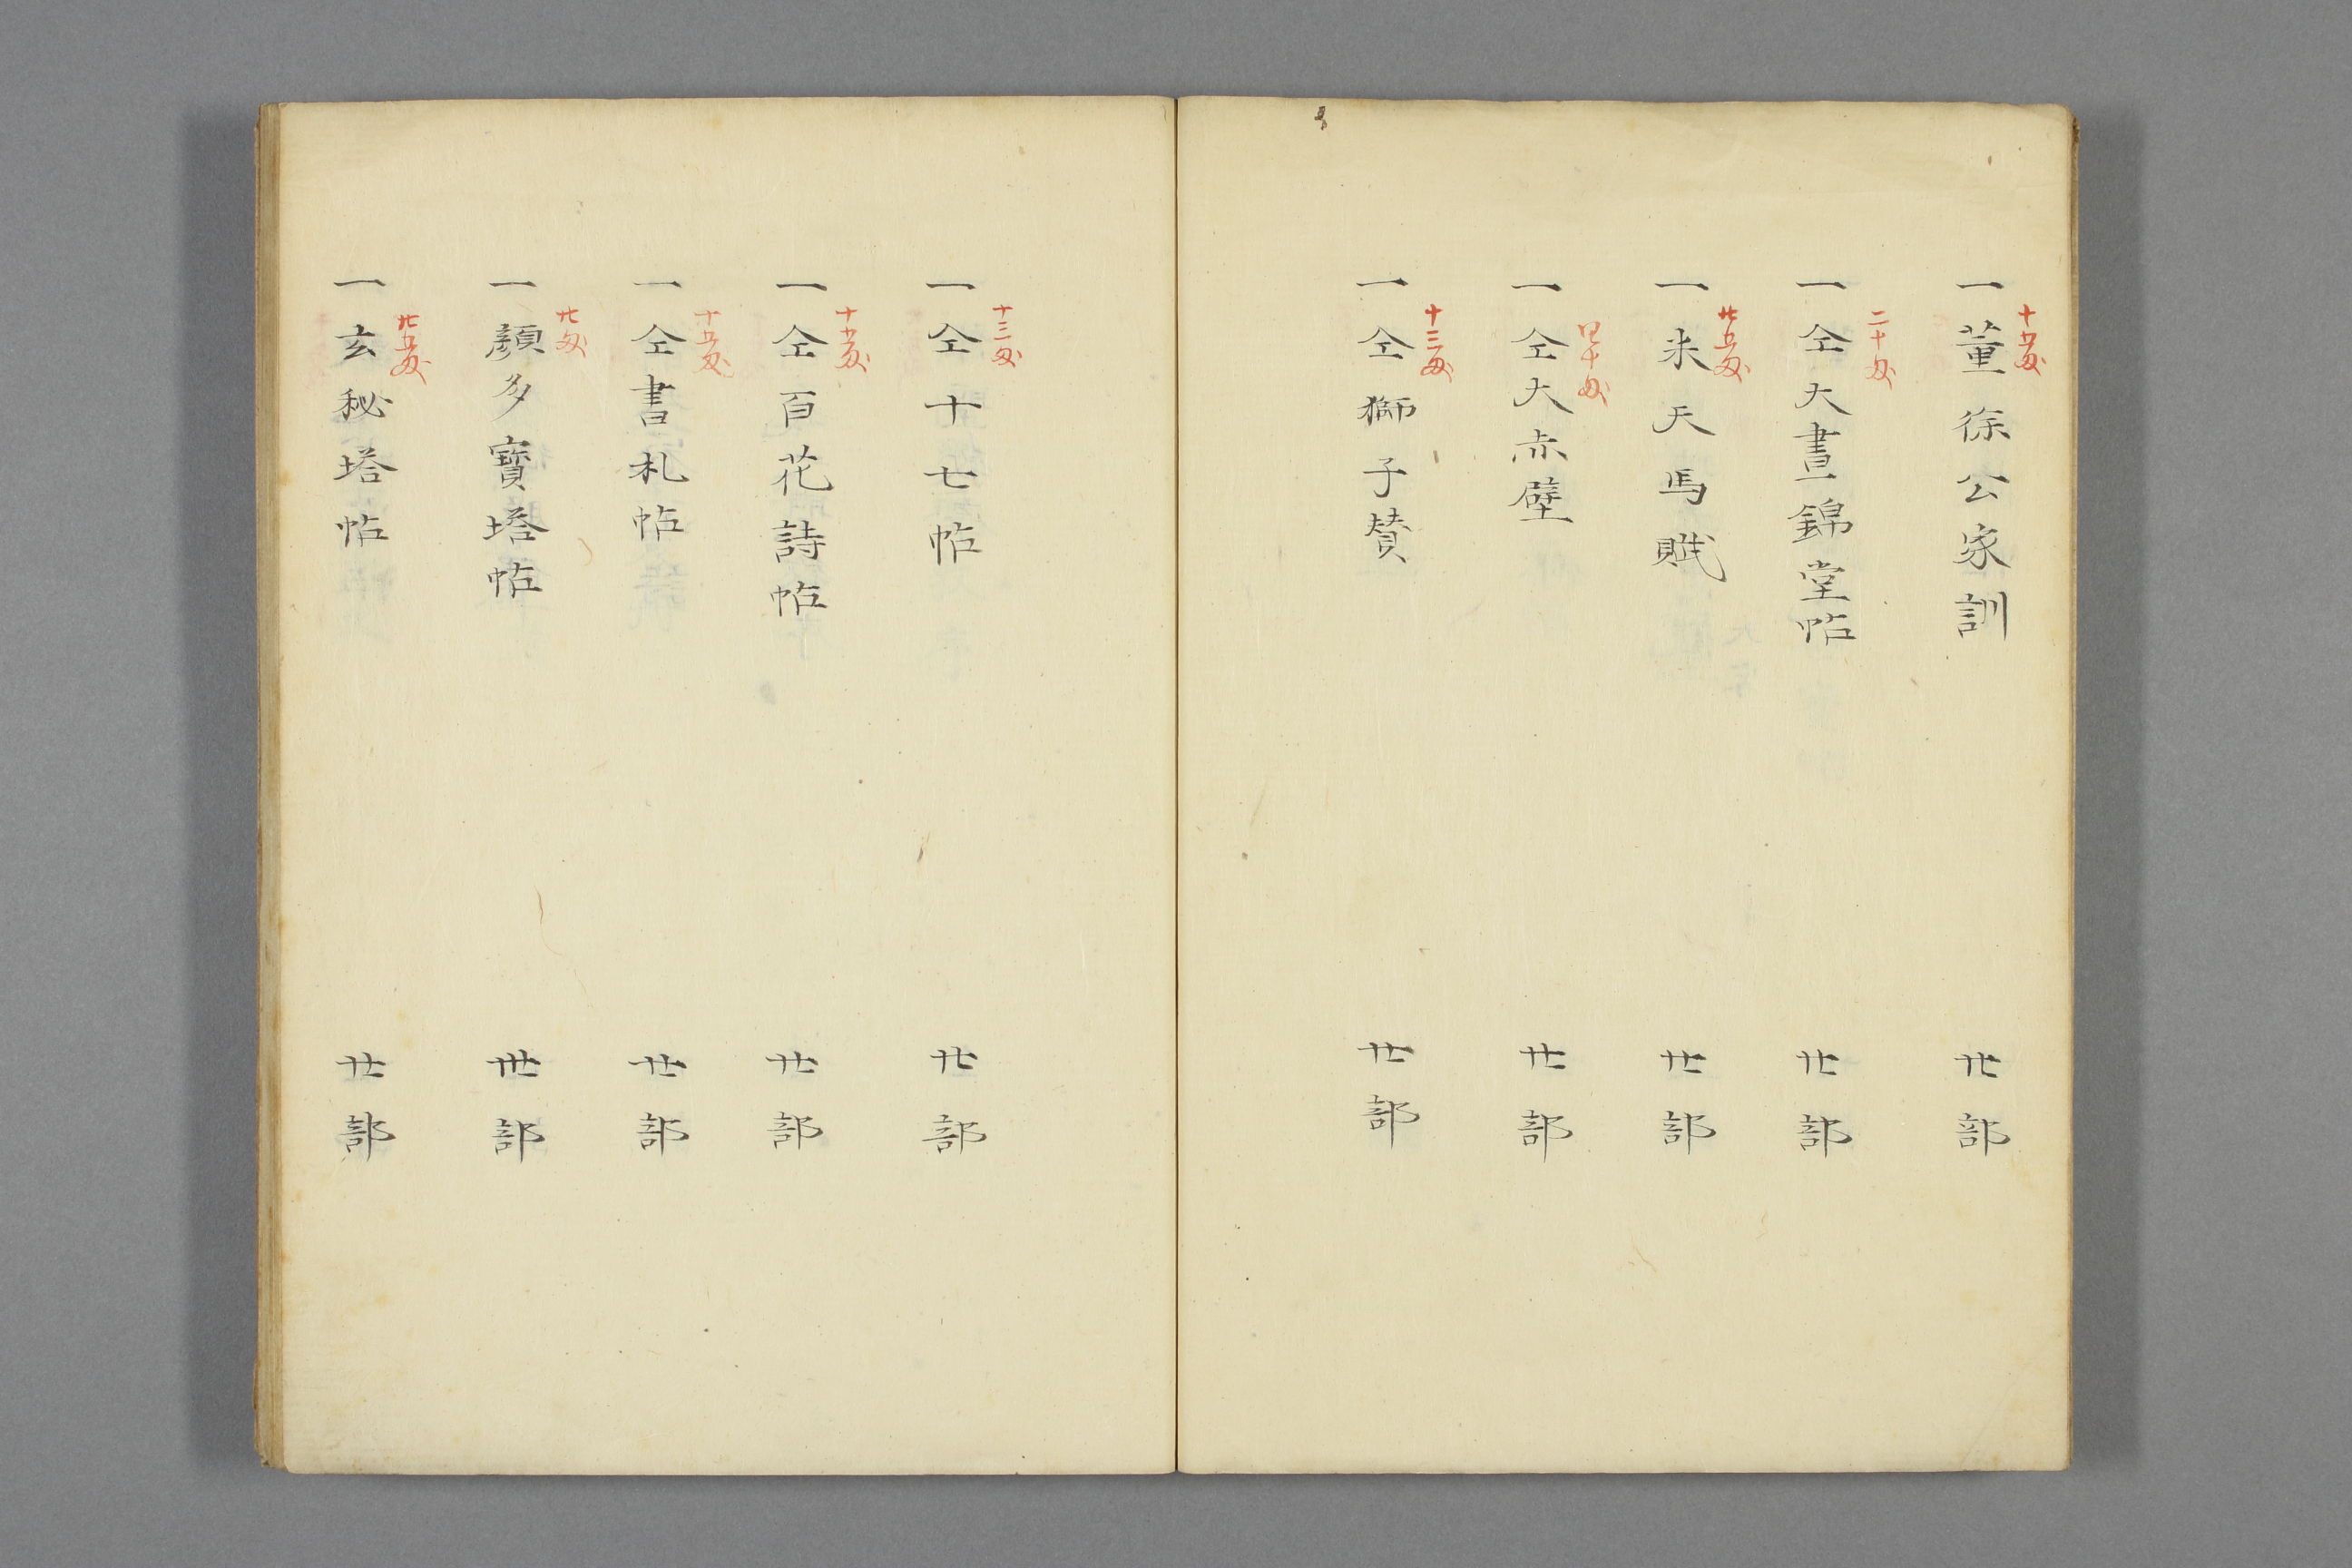 十五匁
一董徐公家訓 廿部
二十匁
一仝大晝錦堂帖 廿部
廿五匁
一米天馬賦 廿部
四十匁
一仝大赤壁 廿部
十三匁
一仝獅子賛 廿部
十三匁
一仝十七帖 廿部
十五匁
一仝百花詩帖 廿部
十五匁
一仝書札帖 廿部
廿匁
一顏多寶塔帖 丗部
廿五匁
一玄秘塔帖 廿部